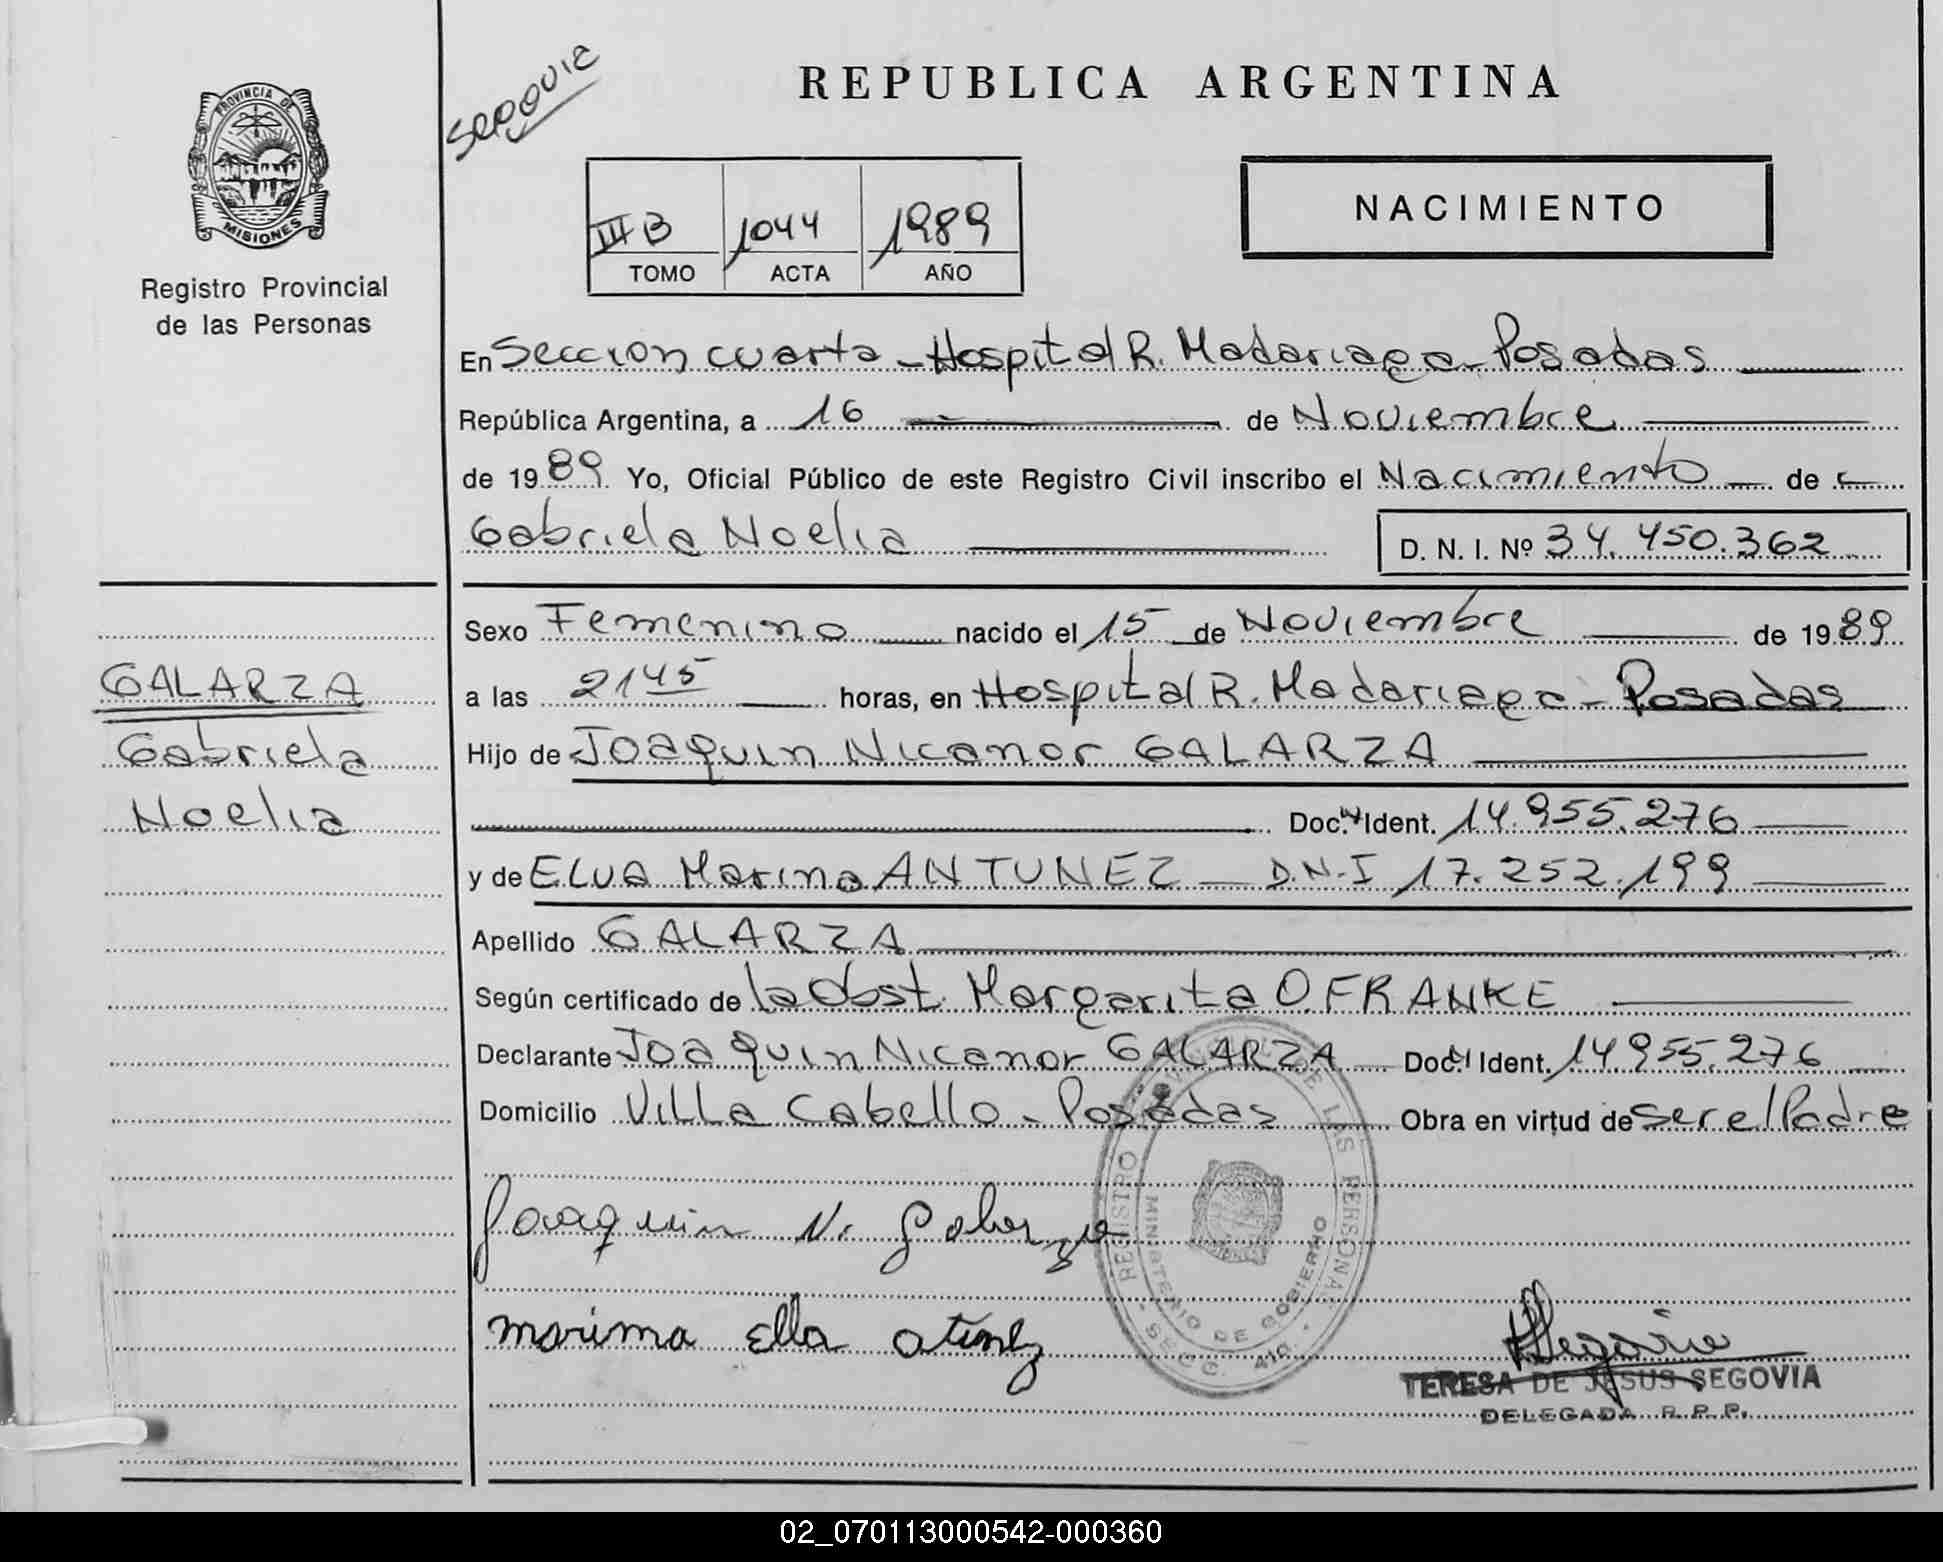 REPUBLICA ARGENTINA
Segovia
PROVINCIA DE
MISIONES
Registro Provincial
de las Personas
III B 1044 1989
TOMO ACTA AÑO
NACIMIENTO
En Seccion cuarta - Hospital R. Madariaga - Posadas
República Argentina, a 16 de Noviembre
de 1989 Yo, Oficial Público de este Registro Civil inscribo el Nacimiento de
Gabriela Noelia D. N. I. Nº 34.450.362
Sexo Femenino nacido el 15 de Noviembre de 1989
GALARZA
Gabriela
Noelia
a las 2145 horas, en Hospital R. Madariaga - Posadas
Hijo de Joaquin Nicanor GALARZA
Doc. Ident. 14.955.276
y de ELVA Marina ANTUNEZ D.N.I 17.252.199
Apellido GALARZA
Según certificado de la Obst. Margarita O. FRANKE
Declarante Joaquin Nicanor GALARZA Doc. Ident. 14.955.276
Domicilio Villa Cabello - Posadas Obra en virtud de ser el Padre
REGISTRO PROVINCIAL DE LAS PERSONAS
MINISTERIO DE GOBIERNO
SECC. 4ta.
Joaquin N. Galarza
marima ella
Segovia
TERESA DE JESUS SEGOVIA
DELEGADA R. P. P.
02_070113000542-000360